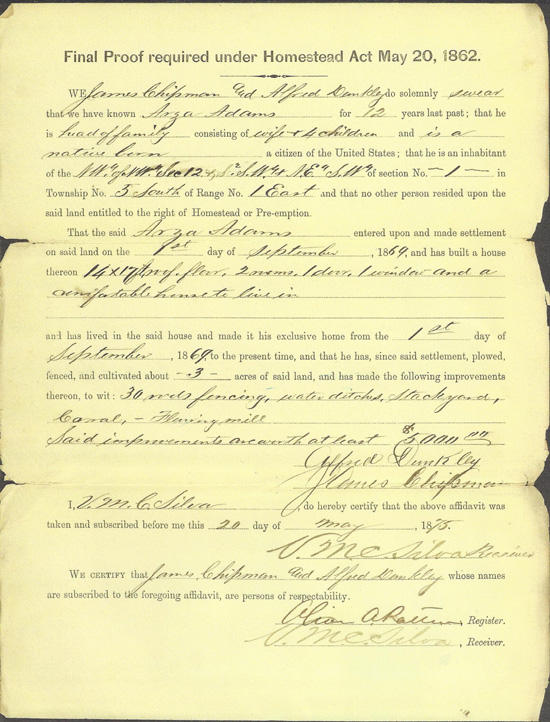 Final Proof required under Homestead Act May 20, 1862.
WE James Chipman and Alfred Dunkley do solemnly swear
that we have known Arza Adams for 12 years last past; that he
is head of family consisting of wife & 4 children and is a
native born a citizen of the United States; that he is an inhabitant
of the N.W.¼ of N.W.¼ Sec 12 & S.½ S.W.¼ & N.E.¼ S.W.¼ of section No. —1— in
Township No. 5 South of Range No. 1 East and that no other person resided upon the
said land entitled to the right of Homestead or Pre-emption.
That the said Arza Adams entered upon and made settlement
on said land on the 1st day of September, 1869, and has built a house
thereon 14 x 17 ft roof, floor, 2 rooms, 1 door, 1 window and a
comfortable house to live in
and has lived in the said house and made it his exclusive home from the 1st day of
September, 1869, to the present time, and that he has, since said settlement, plowed,
fenced, and cultivated about —3— acres of said land, and has made the following improvements
thereon, to wit: 30 rods fencing, water ditches, Stackyard,
Corral, – Flouring mill
Said improvements are worth at least $5,000 00
Alfred Dunkley
James Chipman
I, V. M. C. Silva, do hereby certify that the above affidavit was
taken and subscribed before me this 20 day of May, 1875.
V. M. C. Silva Receiver
WE CERTIFY that James Chipman and Alfred Dunkley whose names
are subscribed to the foregoing affidavit, are persons of respectability.
Register.
V. M. C. Silva, Receiver.